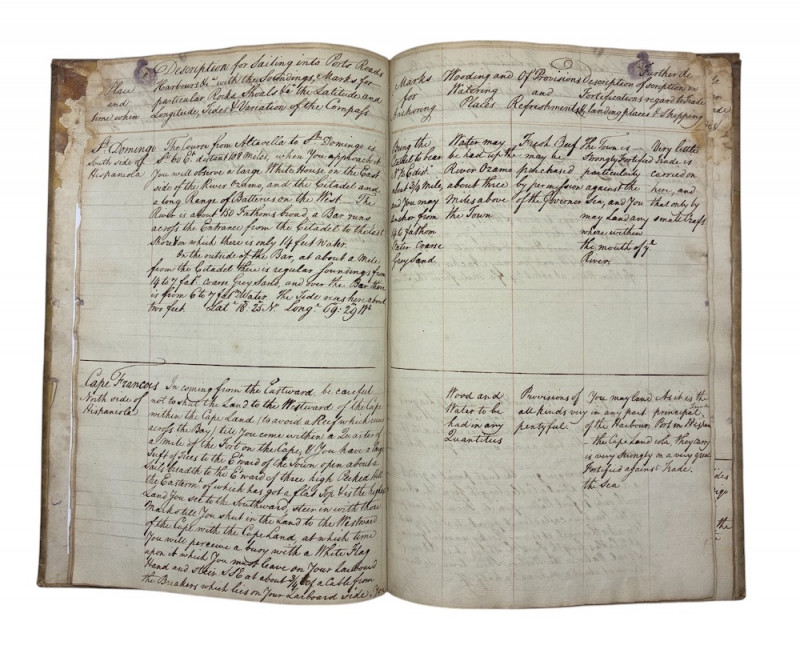 Place
and
time when
Description for Sailing into Ports Roads
Harbours &c with the Soundings, Marks for
particular Rocks Shoals &c the Latitude and
Longitude, Tides & Variation of the Compass
St. Domingo
South side of
Hispaniola
The Course from Altavella to St. Domingo is
distant 108 Miles, when You approach it
You will observe a large White House on the East
side of the River Ozama, and the Citadel and
a long Range of Batteries on the West. The
River is about 150 Fathoms broad, a Bar runs
across the Entrance from the Citadel to the East
Shore & on which there is only 14 feet Water.
On the outside of the Bar, at about a Mile
from the Citadel there is regular soundings from
14 to 7 fat. coarse Grey Sand, and over the Bar there
is from 6 to 7 fat. Water. The Tide rises here about
two feet. Lat. 18:25 N. Long. 69:29 W.
Cape Francois
North side of
Hispaniola
In coming from the Eastward be careful
not to shut the Land to the Westward of the Cape
within the Cape Land (to avoid a Reef which runs
across the Bay) till you come within a Quarter of
a Mile of the Fort on the Cape, & You have a large
Tuft of Trees to the Eward of the Town open about a
Sails breadth to the Eward of three high Peeked Hills
the Eastern of which has got a flat Top & is the highest
Land You see to the Southward, steer in with those
Marks till You shut in the Land to the Westward
of the Cape with the Cape Land, at which time
You will perceive a buoy with a White Flag
upon it which You must leave on Your Larboard
Hand and steer SSE at about 3/4 of a Cable from
the Breakers which lies on Your Larboard Side
Marks
for
Anchoring
Wooding and
Watering
Places
Of Provisions
and
Refreshments
Description of
Fortifications
& landing places
Further de
scription in
regard to Trade
& Shipping
Bring the
Citadel to bear
about 3/4 Mile,
and You may
anchor from
Water Coarse
Grey Sand
Water may
be had up the
River Ozama
about three
Miles above
the Town
Fresh Beef
may be
purchased
by permission
of the Governor
The Town is
Strongly Fortified
particularly
against the
Sea, and You
may Land any
where within
the mouth of ye
River
Very little
Trade is
carried on
here, and
that only by
small Craft
Wood and
Water to be
had in any
Quantities
Provisions of
all kinds very
plentyful
You may land
in any part
of the Harbour
the Cape Land
is very Strongly
Fortified against
the Sea
As it is the
principal French
Port in Hispan
iola, They carry
on a very great
Trade.